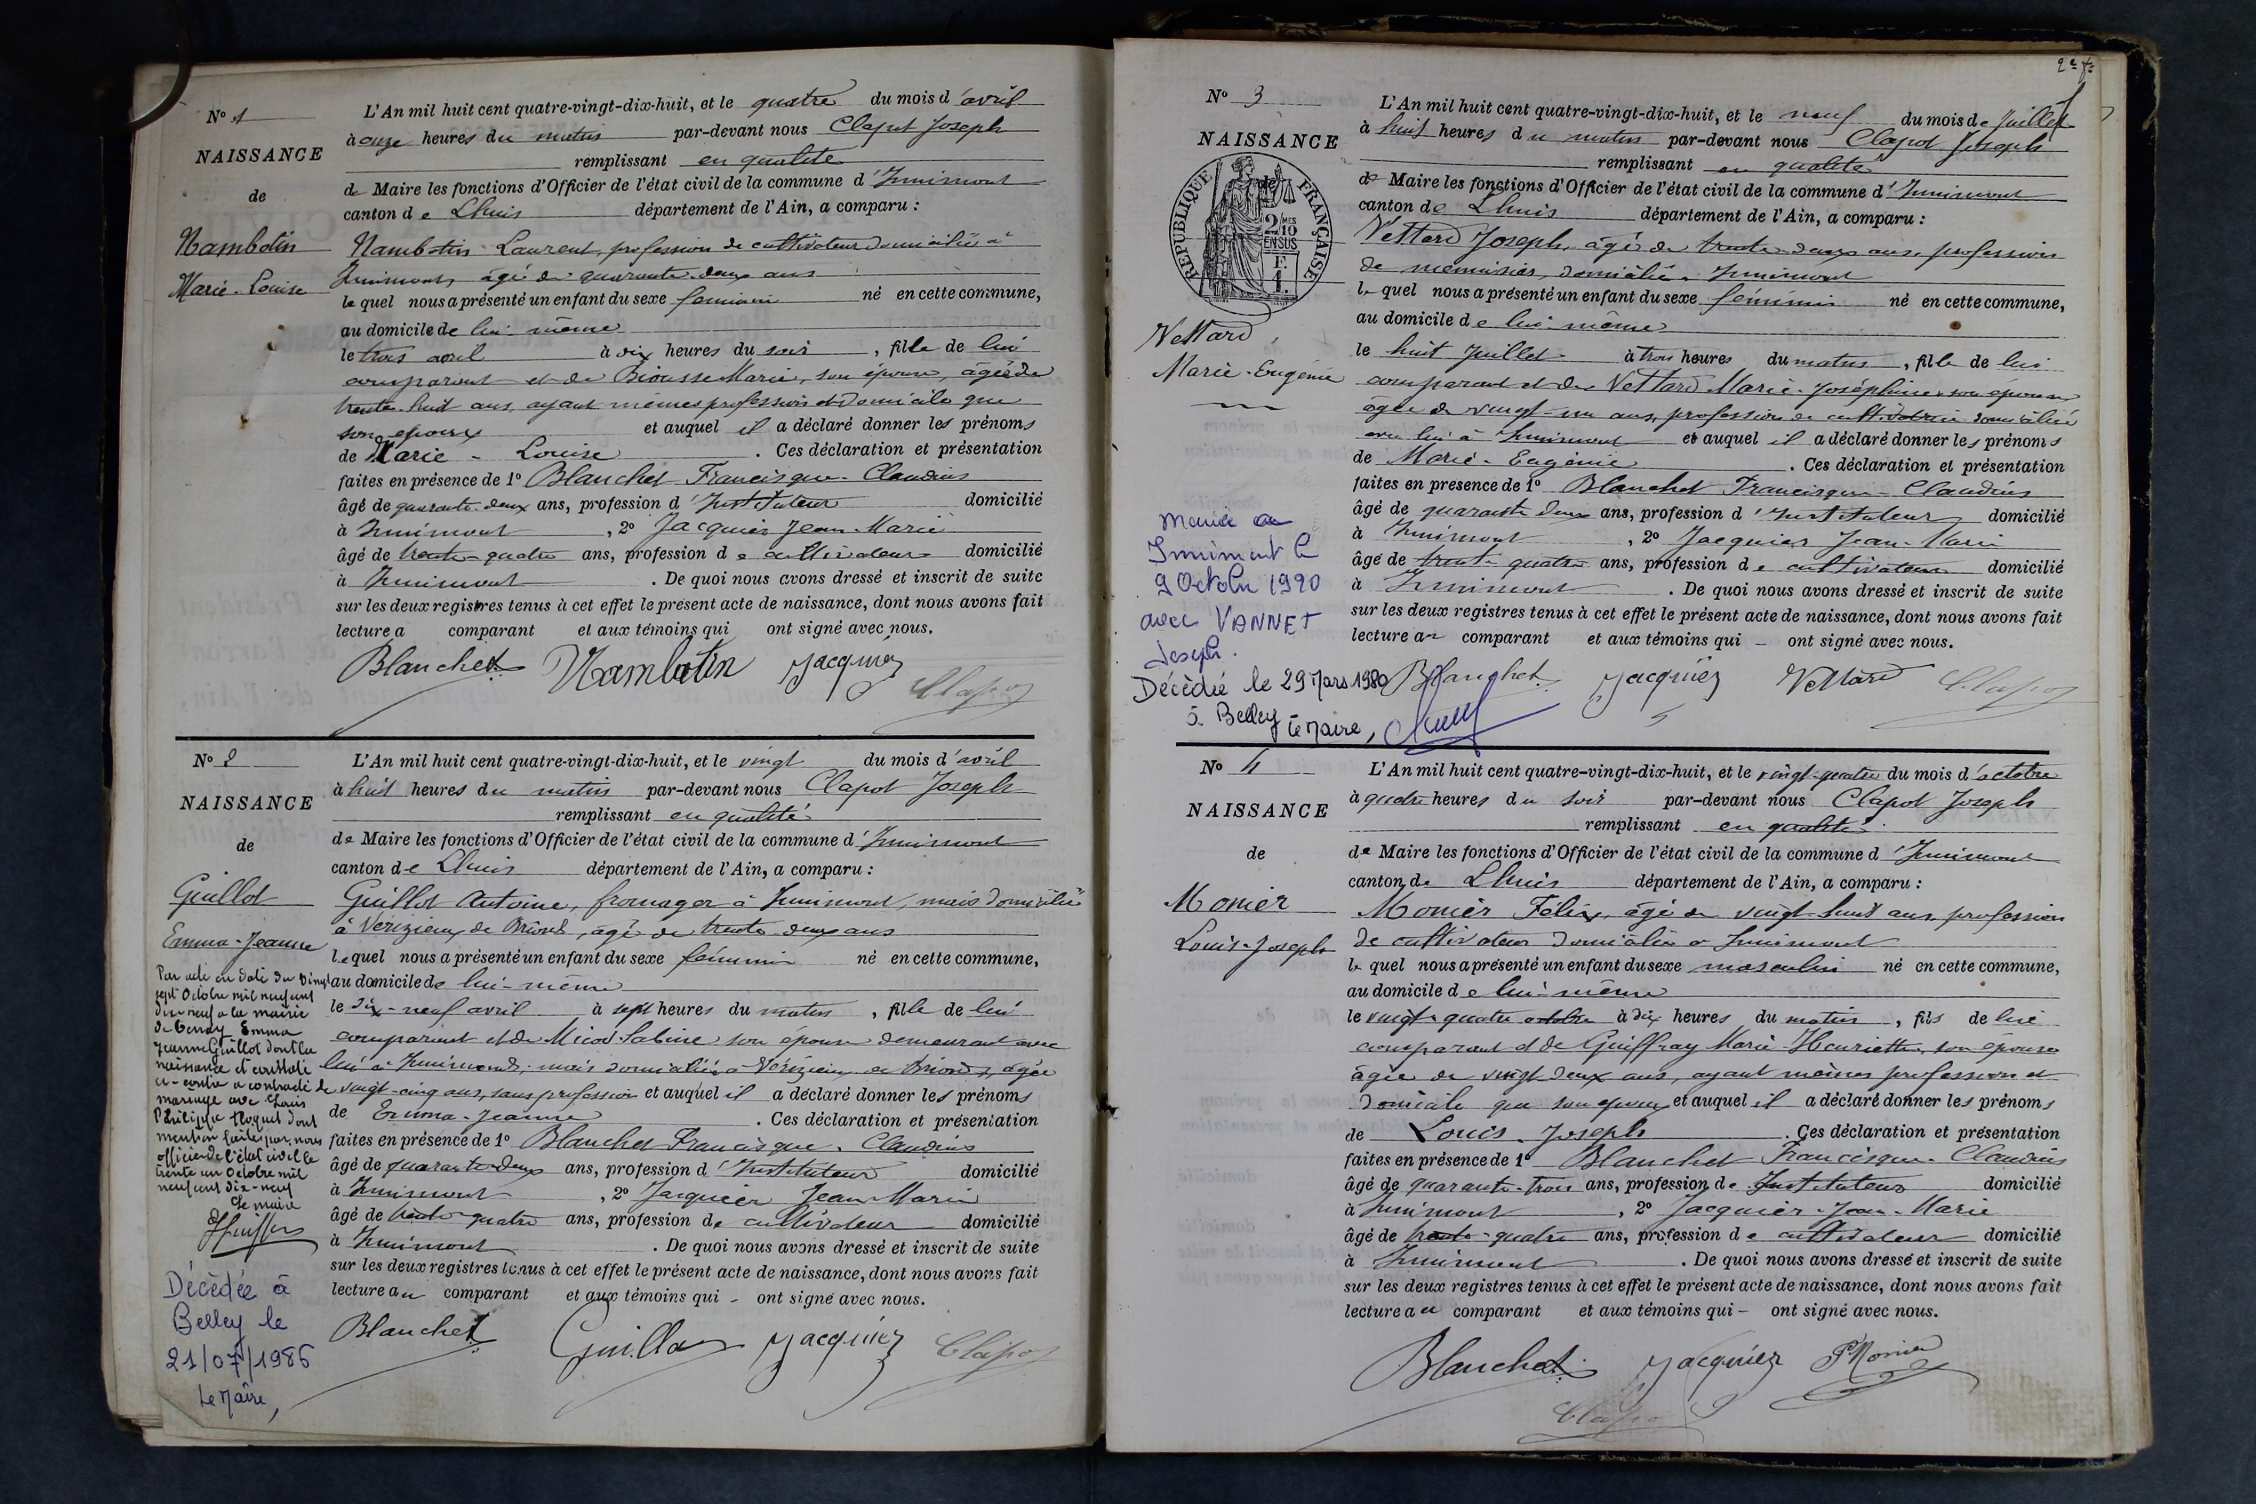 No 1
NAISSANCE
de
Nambotin
Marie-Louise
L'An mil huit cent quatre-vingt-dix-huit, et le quatre du mois d'avril
à onze heures du matin par-devant nous Clapot Joseph
remplissant en qualité
de Maire les fonctions d'Officier de l'état civil de la commune d'Innimont
canton de Lhuis département de l'Ain, a comparu :
Nambotin Laurent, profession de cultivateur domicilié à
Innimont, âgé de quarante-deux ans
lequel nous a présenté un enfant du sexe féminin né en cette commune,
au domicile de lui-même
le trois avril à dix heures du soir, fille de lui
comparant et de Biousse Marie, son épouse, âgée de
trente-huit ans, ayant mêmes profession et domicile que
son époux et auquel il a déclaré donner les prénoms
de Marie-Louise. Ces déclaration et présentation
faites en présence de 1º Blanchet Francisque-Claudius
âgé de quarante-deux ans, profession d'Instituteur domicilié
à Innimont, 2º Jacquier Jean-Marie
âgé de trente-quatre ans, profession de cultivateur domicilié
à Innimont. De quoi nous avons dressé et inscrit de suite
sur les deux registres tenus à cet effet le présent acte de naissance, dont nous avons fait
lecture a comparant et aux témoins qui ont signé avec nous.
Blanchet Nambotin Jacquier
Clapot
No 2
NAISSANCE
de
Guillot
Emma-Jeanne
L'An mil huit cent quatre-vingt-dix-huit, et le vingt du mois d'avril
à huit heures du matin par-devant nous Clapot Joseph
remplissant en qualité
de Maire les fonctions d'Officier de l'état civil de la commune d'Innimont
canton de Lhuis département de l'Ain, a comparu :
Guillot Antoine, fromager à Innimont, mais domicilié
à Vérizieu de Briord, âgé de trente-deux ans
lequel nous a présenté un enfant du sexe féminin né en cette commune,
au domicile de lui-même
le dix-neuf avril à sept heures du matin, fille de lui
comparant et de Micod Sabine son épouse demeurant avec
lui à Innimont, mais domiciliée à Vérizieu de Briord, âgée
de vingt-cinq ans, sans profession et auquel il a déclaré donner les prénoms
de Emma-Jeanne. Ces déclaration et présentation
faites en présence de 1º Blanchet Francisque-Claudius
âgé de quarante-deux ans, profession d'Instituteur domicilié
à Innimont, 2º Jacquier Jean-Marie
âgé de trente-quatre ans, profession de cultivateur domicilié
à Innimont. De quoi nous avons dressé et inscrit de suite
sur les deux registres tenus à cet effet le présent acte de naissance, dont nous avons fait
lecture au comparant et aux témoins qui - ont signé avec nous.
Blanchet Guillot Jacquier Clapot
Par acte en date du vingt
sept Octobre mil neuf cent
dix neuf à la mairie
de Emma
Jeanne Guillot dont la
naissance est constatée
ci-contre a contracté
mariage avec Louis
Philippe Hoquet dont
mention faite par nous
officier de l'état civil le
trente un Octobre mil
neuf cent dix-neuf
Le maire
Décédée à
Belley le
21/07/1986
Le Maire,
2e f.
No 3
NAISSANCE
de
RÉPUBLIQUE FRANÇAISE
2 MES
10
EN SUS
F.
1.
Vettard,
Marie-Eugénie
L'An mil huit cent quatre-vingt-dix-huit, et le neuf du mois de Juillet
à huit heures du matin par-devant nous Clapot Joseph
remplissant en qualité
de Maire les fonctions d'Officier de l'état civil de la commune d'Innimont
canton de Lhuis département de l'Ain, a comparu :
Vettard Joseph, âgé de trente-deux ans, profession
de menuisier, domicilié à Innimont
lequel nous a présenté un enfant du sexe féminin né en cette commune,
au domicile de lui-même
le huit Juillet à trois heures du matin, fille de lui
comparant et de Vettard Marie-Joséphine son épouse
âgée de vingt-un ans, profession de cultivatrice domiciliée
avec lui à Innimont et auquel il a déclaré donner les prénoms
de Marie-Eugénie. Ces déclaration et présentation
faites en presence de 1º Blanchet Francisque-Claudius
âgé de quarante deux ans, profession d'Instituteur domicilié
à Innimont, 2º Jacquier Jean-Marie
âgé de trente-quatre ans, profession de cultivateur domicilié
à Innimont. De quoi nous avons dressé et inscrit de suite
sur les deux registres tenus à cet effet le présent acte de naissance, dont nous avons fait
lecture au comparant et aux témoins qui - ont signé avec nous.
Blanchet Jacquier Vettard Clapot
Mariée à
Innimont le
9 Octobre 1920
avec VANNET
Joseph.
Décédée le 29 Mars 1980
à Belley Le Maire,
No 4
NAISSANCE
de
Monier
Louis-Joseph
L'An mil huit cent quatre-vingt-dix-huit, et le vingt-quatre du mois d'octobre
à quatre heures du soir par-devant nous Clapot Joseph
remplissant en qualité
de Maire les fonctions d'Officier de l'état civil de la commune d'Innimont
canton de Lhuis département de l'Ain, a comparu :
Monier Félix, âgé de vingt-huit ans, profession
de cultivateur domicilié à Innimont
lequel nous a présenté un enfant du sexe masculin né en cette commune,
au domicile de lui-même
le vingt-quatre octobre à dix heures du matin, fils de lui
comparant et de Guiffray Marie-Henriette, son épouse
âgée de vingt-deux ans, ayant mêmes profession et
domicile que son époux et auquel il a déclaré donner les prénoms
de Louis-Joseph. Ces déclaration et présentation
faites en présence de 1º Blanchet Francisque-Claudius
âgé de quarante-trois ans, profession de Instituteur domicilié
à Innimont, 2º Jacquier-Jean-Marie
âgé de trente-quatre ans, profession de cultivateur domicilié
à Innimont. De quoi nous avons dressé et inscrit de suite
sur les deux registres tenus à cet effet le présent acte de naissance, dont nous avons fait
lecture au comparant et aux témoins qui - ont signé avec nous.
Blanchet Jacquier Monier
Clapot